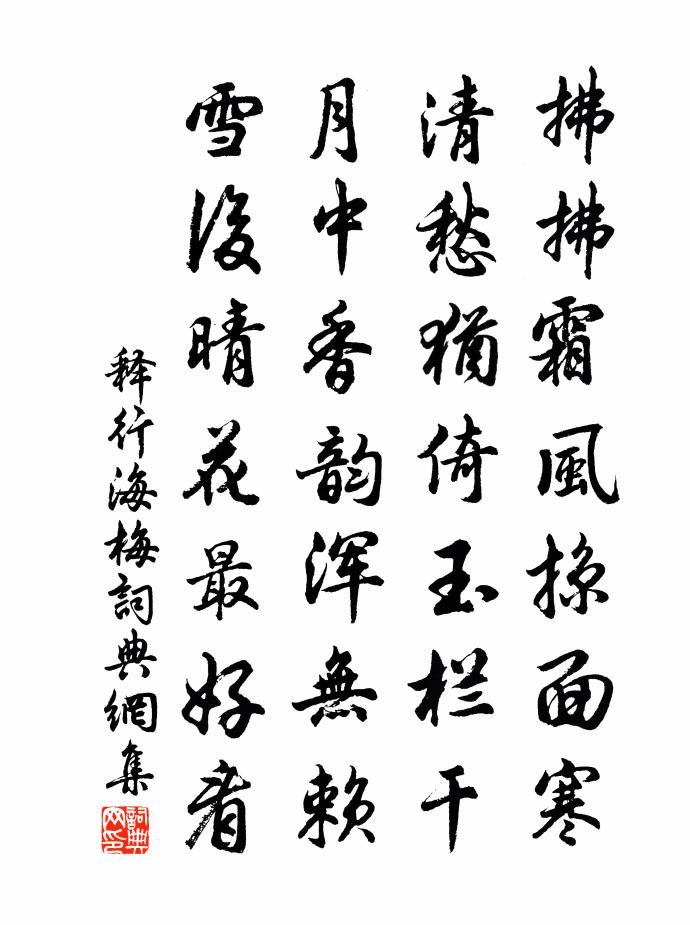 拂拂霜風掠面寒
清愁猶倚玉栏干
月中香韵浑無赖
雪後晴花最好看
释行海梅詞典網集
詞典网印